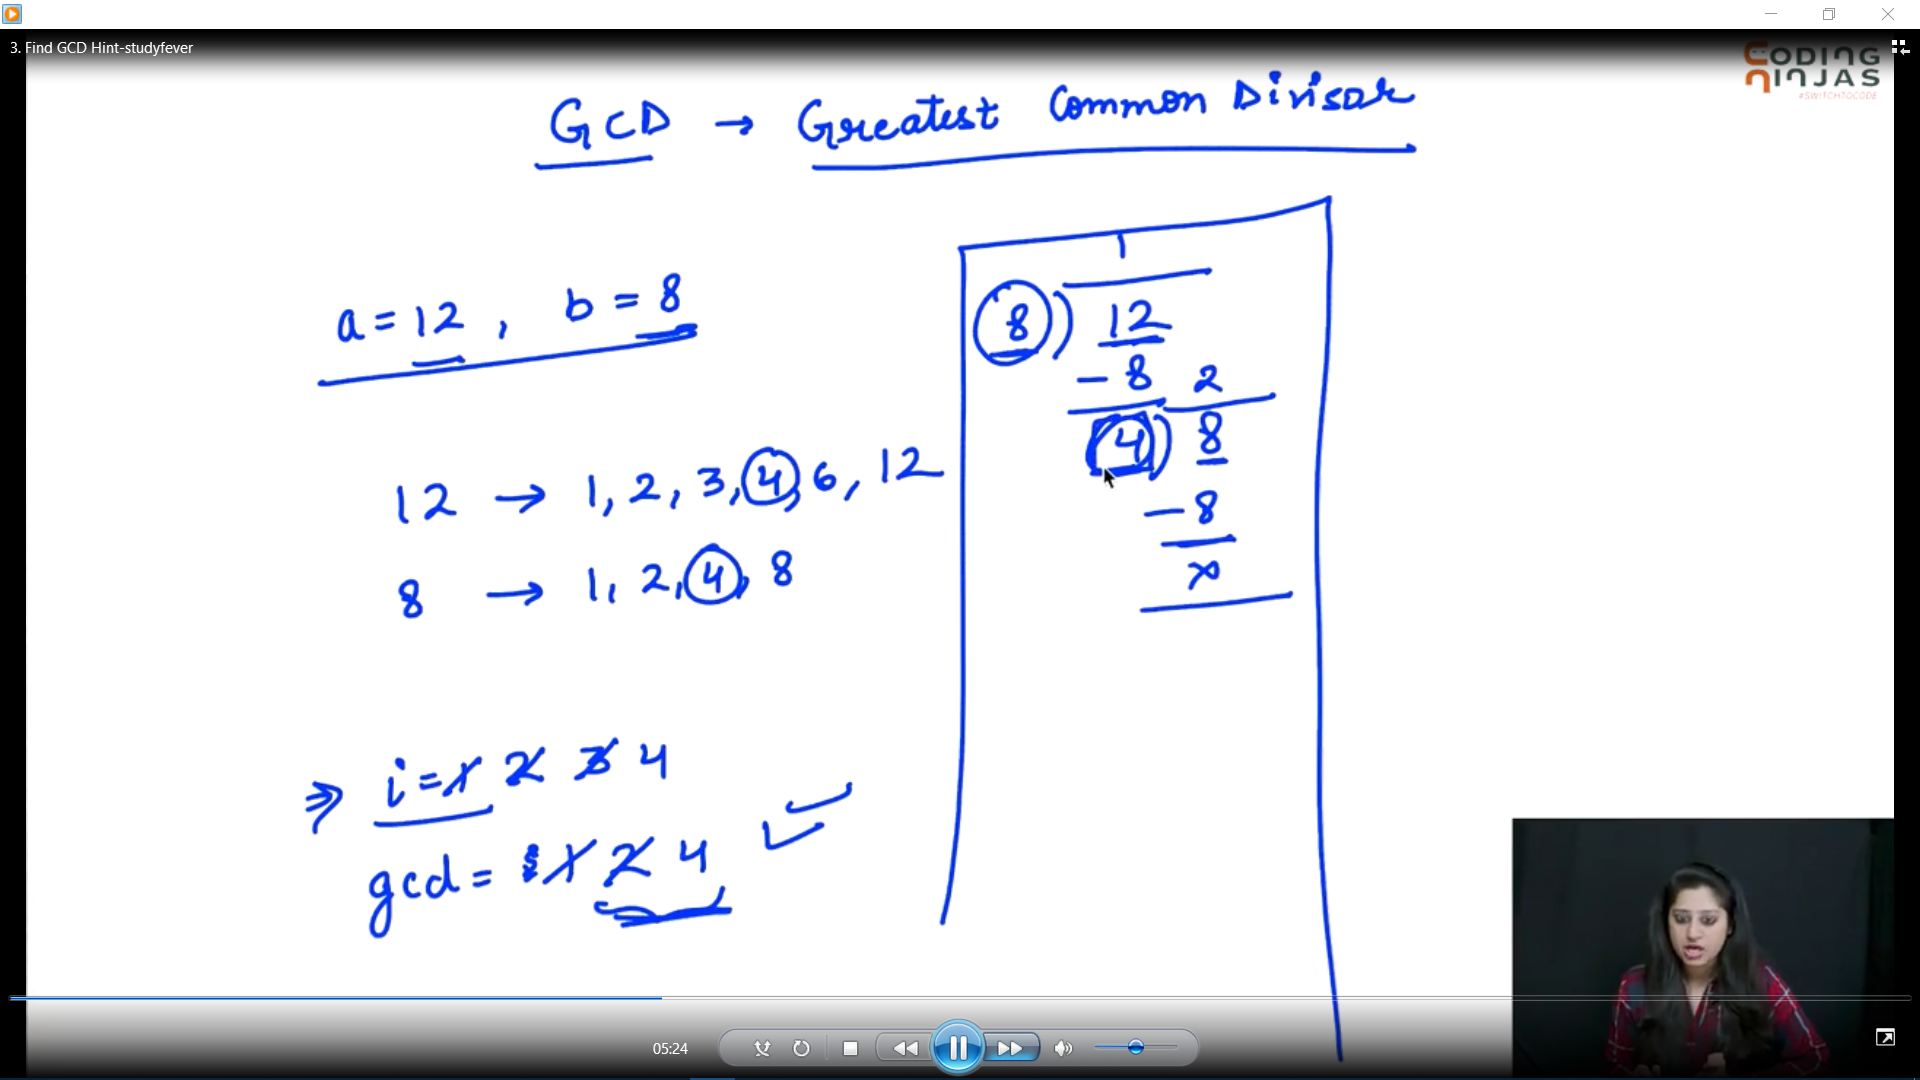 3. Find GCD Hint-studyfever
CODING
NINJAS
#SWITCHTOCODE
GCD → Greatest Common Divisor
a = 12 , b = 8
12 → 1, 2, 3, 4, 6, 12
8 → 1, 2, 4, 8
1
8 ) 12
- 8 2
4 ) 8
- 8
⇒ i = 1 2 3 4
gcd = 1 2 4
05:24